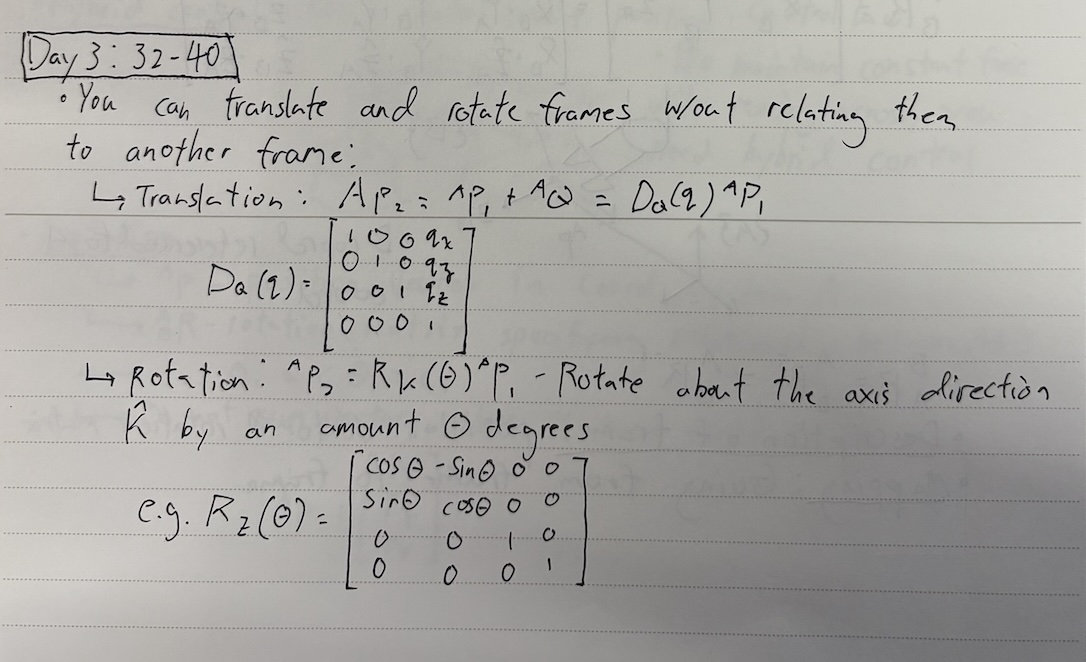 Day 3: 32-40
• You can translate and rotate frames w/out relating them
to another frame:
↳ Translation: ᴬP₂ = ᴬP₁ + ᴬQ = D_Q(q) ᴬP₁
D_Q(q) = [1 0 0 qx
0 1 0 qy
0 0 1 qz
0 0 0 1]
↳ Rotation: ᴬP₂ = R_K(θ) ᴬP₁ - Rotate about the axis direction
K̂ by an amount θ degrees
e.g. R_z(θ) = [cosθ -sinθ 0 0
sinθ cosθ 0 0
0 0 1 0
0 0 0 1]